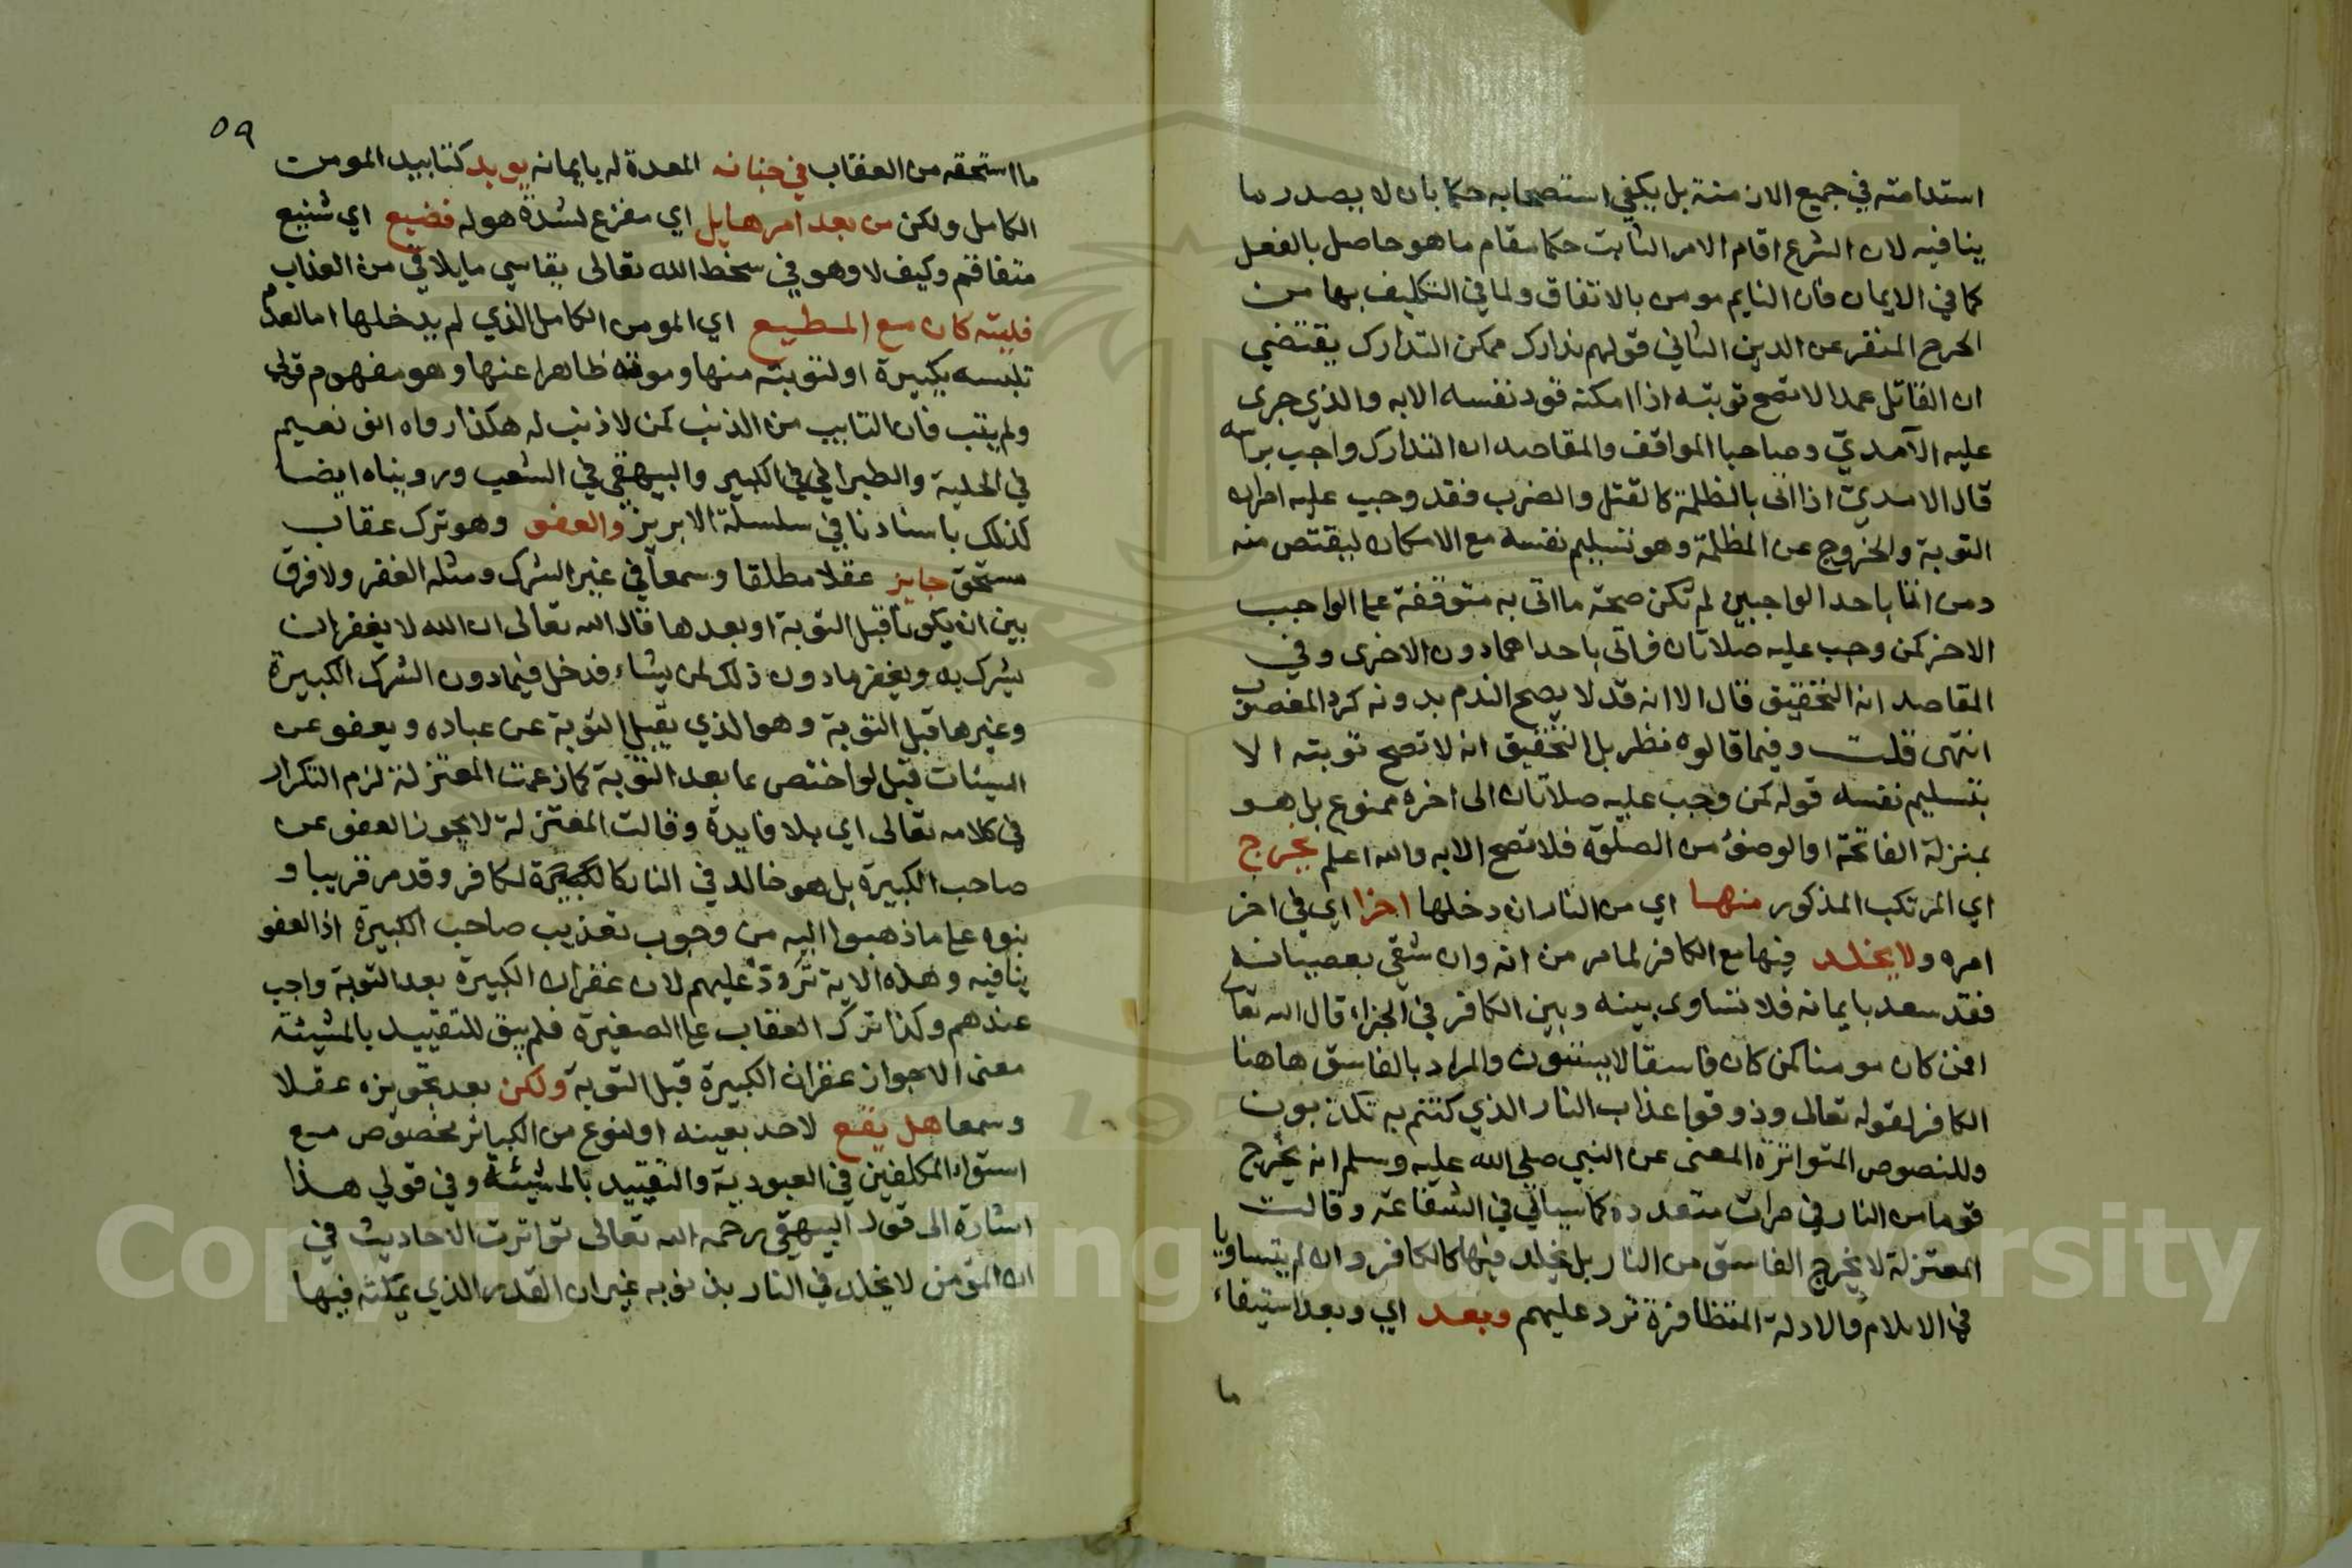 استدامته في جميع الازمنة بل يكفي استصحابه حكما بان لا يصدر ما
ينافيه لان الشرع اقام الامر الثابت حكما مقام ما هو حاصل بالفعل
كما في الايمان فان النايم مومن بالاتفاق ولما في التكليف بها من
الحرج المنفر عن الدين الثاني قولهم تدارك ممكن التدارك يقتضي
ان القاتل عمدا لا تصح توبته اذا امكنه قود نفسه الا به والذي جرى
عليه الآمدي وصاحبا المواقف والمقاصد ان التدارك واجب براسه
قال الامدي اذا اتى بالظلمة كالقتل والضرب فقد وجب عليه امران
التوبة والخروج عن المظلمة وهو تسليم نفسه مع الامكان ليقتص منه
ومن اتا باحد الواجبين لم تكن صحة ما اتى به متوقفة على الواجب
الاخر كمن وجب عليه صلاتان فاتى باحداهما دون الاخرى وفي
المقاصد انه التحقيق قال الا انه قد لا يصح الندم بدونه كرد المغصوب
انتهى قلت وفيما قالوه نظر بل التحقيق انه لا تصح توبته الا
بتسليم نفسه قوله كمن وجب عليه صلاتان الى اخره ممنوع بل هو
بمنزلة الفاتحة او الوضوء من الصلوة فلا تصح الا به والله اعلم يخرج
اي المرتكب المذكور منها اي من النار ان دخلها اخرا اي في اخر
امره ولا يخلد فيها مع الكافر لما مر من انه وان شقي بعصيانه
فقد سعد بايمانه فلا تساوى بينه وبين الكافر في الجزاء قال الله تعالى
افمن كان مومنا كمن كان فاسقا لا يستوون والمراد بالفاسق هاهنا
الكافر لقوله تعالى وذوقوا عذاب النار الذي كنتم به تكذبون
وللنصوص المتواترة المعنى عن النبي صلى الله عليه وسلم انه يخرج
قوما من النار في مرات متعددة كما سياتي في الشفاعة وقالت
المعتزلة لا يخرج الفاسق من النار بل يخلد فيها كالكافر وان لم يتساويا
في الايلام والادلة المتظافرة ترد عليهم وبعد اي وبعد استيفاء
ما
٥٩
ما استحقه من العقاب في جنانه المعدة له بايمانه يوبد كتابيد المومن
الكامل ولكن من بعد امر هايل اي مفزع لشدة هوله فضيع اي شنيع
متفاقم وكيف لا وهو في سخط الله تعالى يقاسي ما يلاقي من العذاب
فليته كان مع المطيع اي المومن الكامل الذي لم يدخلها اما لعدم
تلبسه بكبيرة او لتوبته منها وموته طاهرا عنها وهو مفهوم قولي
ولم يتب فان التايب من الذنب كمن لا ذنب له هكذا رواه ابو نعيم
في الحلية والطبراني في الكبير والبيهقي في الشعب ورويناه ايضا
كذلك باسنادنا في سلسلة الابريز والعفو وهو ترك عقاب
مستحق جايز عقلا مطلقا وسمعا في غير الشرك ومثله الغفر ولا فرق
بين ان يكونا قبل التوبة او بعدها قال الله تعالى ان الله لا يغفر ان
يشرك به ويغفر ما دون ذلك لمن يشاء فدخل فيما دون الشرك الكبيرة
وغيرها قبل التوبة وهو الذي يقبل التوبة عن عباده ويعفو عن
السيئات قبل لو اختص بما بعد التوبة كما زعمت المعتزلة لزم التكرار
في كلامه تعالى اي بلا فايدة وقالت المعتزلة لا يجوز العفو عن
صاحب الكبيرة بل هو خالد في النار كالكبيرة لكافر وقد مر قريبا و
بنوه على ما ذهبوا اليه من وجوب تعذيب صاحب الكبيرة اذ العفو
ينافيه وهذه الاية تردد عليهم لان غفران الكبيرة بعد التوبة واجب
عندهم وكذا ترك العقاب على الصغيرة فلم يبق للتقييد بالمشيئة
معنى الا جواز غفران الكبيرة قبل التوبة ولكن بعد تجويزه عقلا
وسمعا هل يقع لاحد بعينه او لنوع من الكبائر مخصوص مع
استواء المكلفين في العبودية والتقييد بالمشيئة وفي قولي هذا
اشارة الى قول البيهقي رحمه الله تعالى تواترت الاحاديث في
ان المؤمن لا يخلد في النار بذنوبه غير ان القدر الذي يمكثه فيها
Copyright © King Saud University